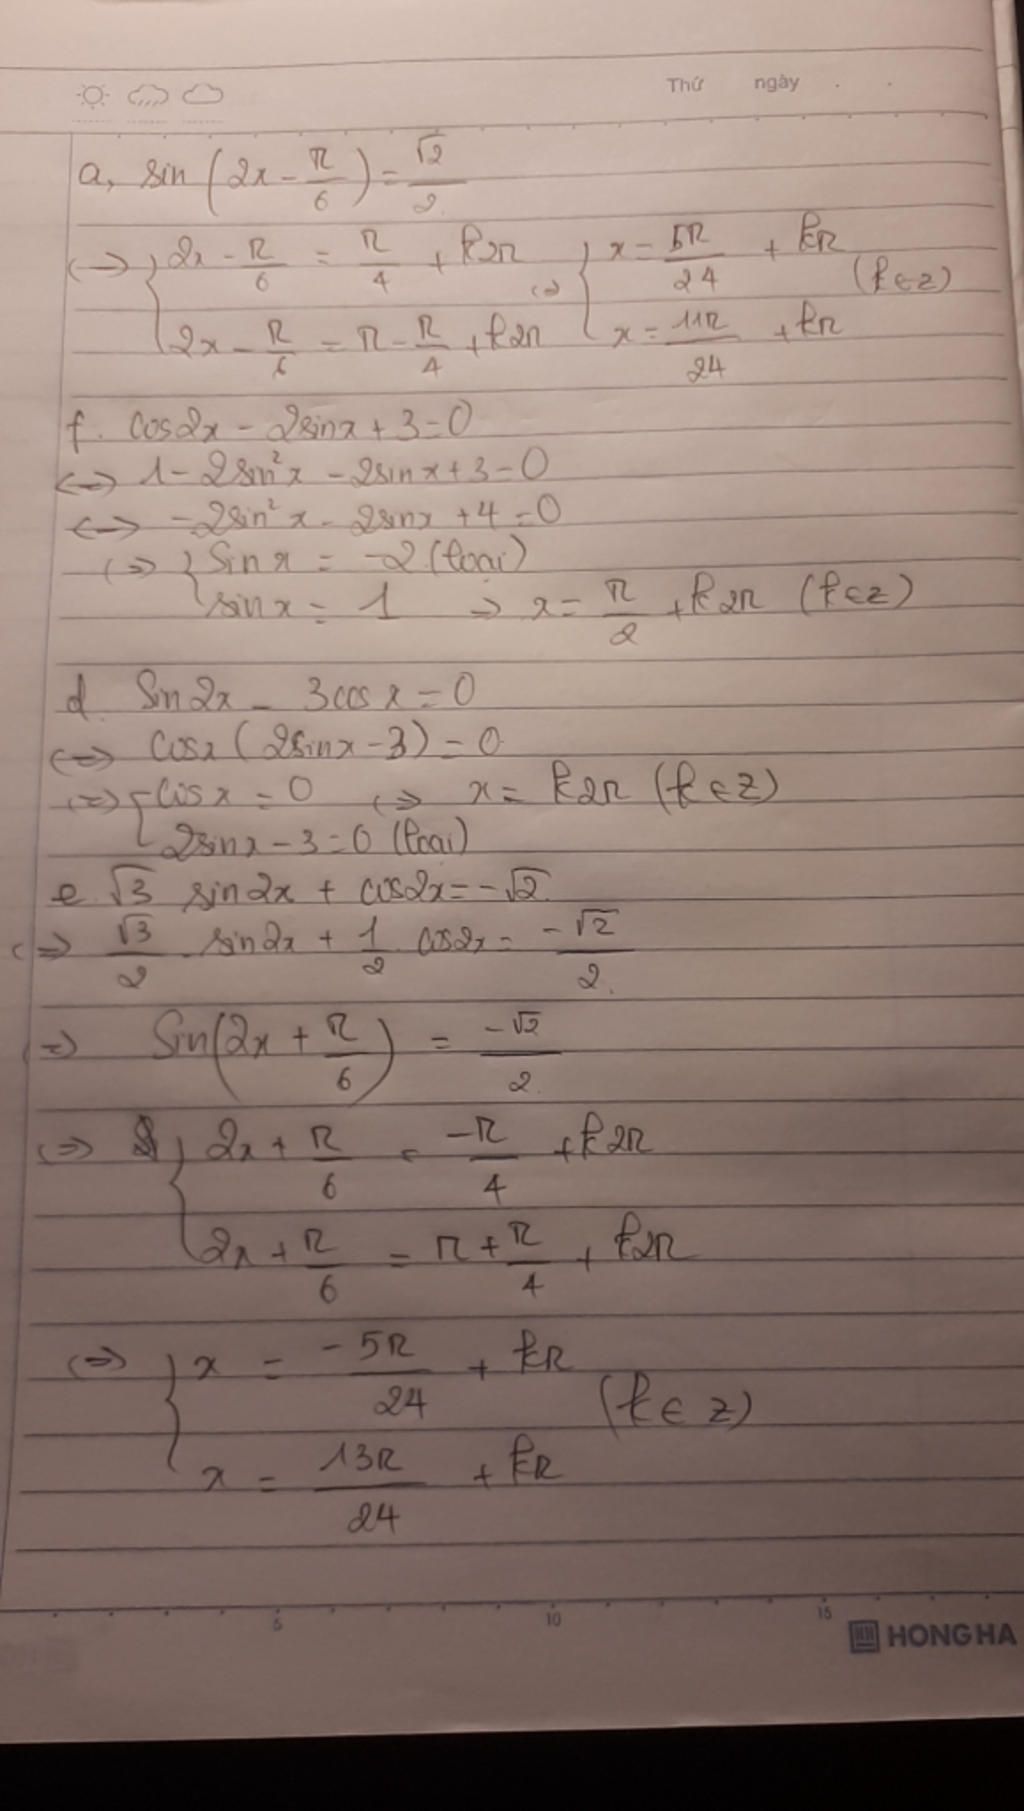 Thứ ngày
a, sin(2x - π/6) = √2/2
<=> { 2x - π/6 = π/4 + k2π <=> { x = 5π/24 + kπ (k∈Z)
2x - π/6 = π - π/4 + k2π x = 11π/24 + kπ
f. cos2x - 2sinx + 3 = 0
<=> 1 - 2sin²x - 2sinx + 3 = 0
<=> -2sin²x - 2sinx + 4 = 0
<=> { sinx = -2 (loại)
sinx = 1 => x = π/2 + k2π (k∈Z)
d. Sin2x - 3cosx = 0
<=> cosx (2sinx - 3) = 0
<=> { cosx = 0 <=> x = k2π (k∈Z)
2sinx - 3 = 0 (loại)
e. √3 sin2x + cos2x = -√2
<=> √3/2 . sin2x + 1/2 cos2x = -√2/2
=> Sin(2x + π/6) = -√2/2
<=> { 2x + π/6 = -π/4 + k2π
2x + π/6 = π + π/4 + k2π
<=> { x = -5π/24 + kπ
(k∈Z)
x = 13π/24 + kπ
5 10 15
HONG HA